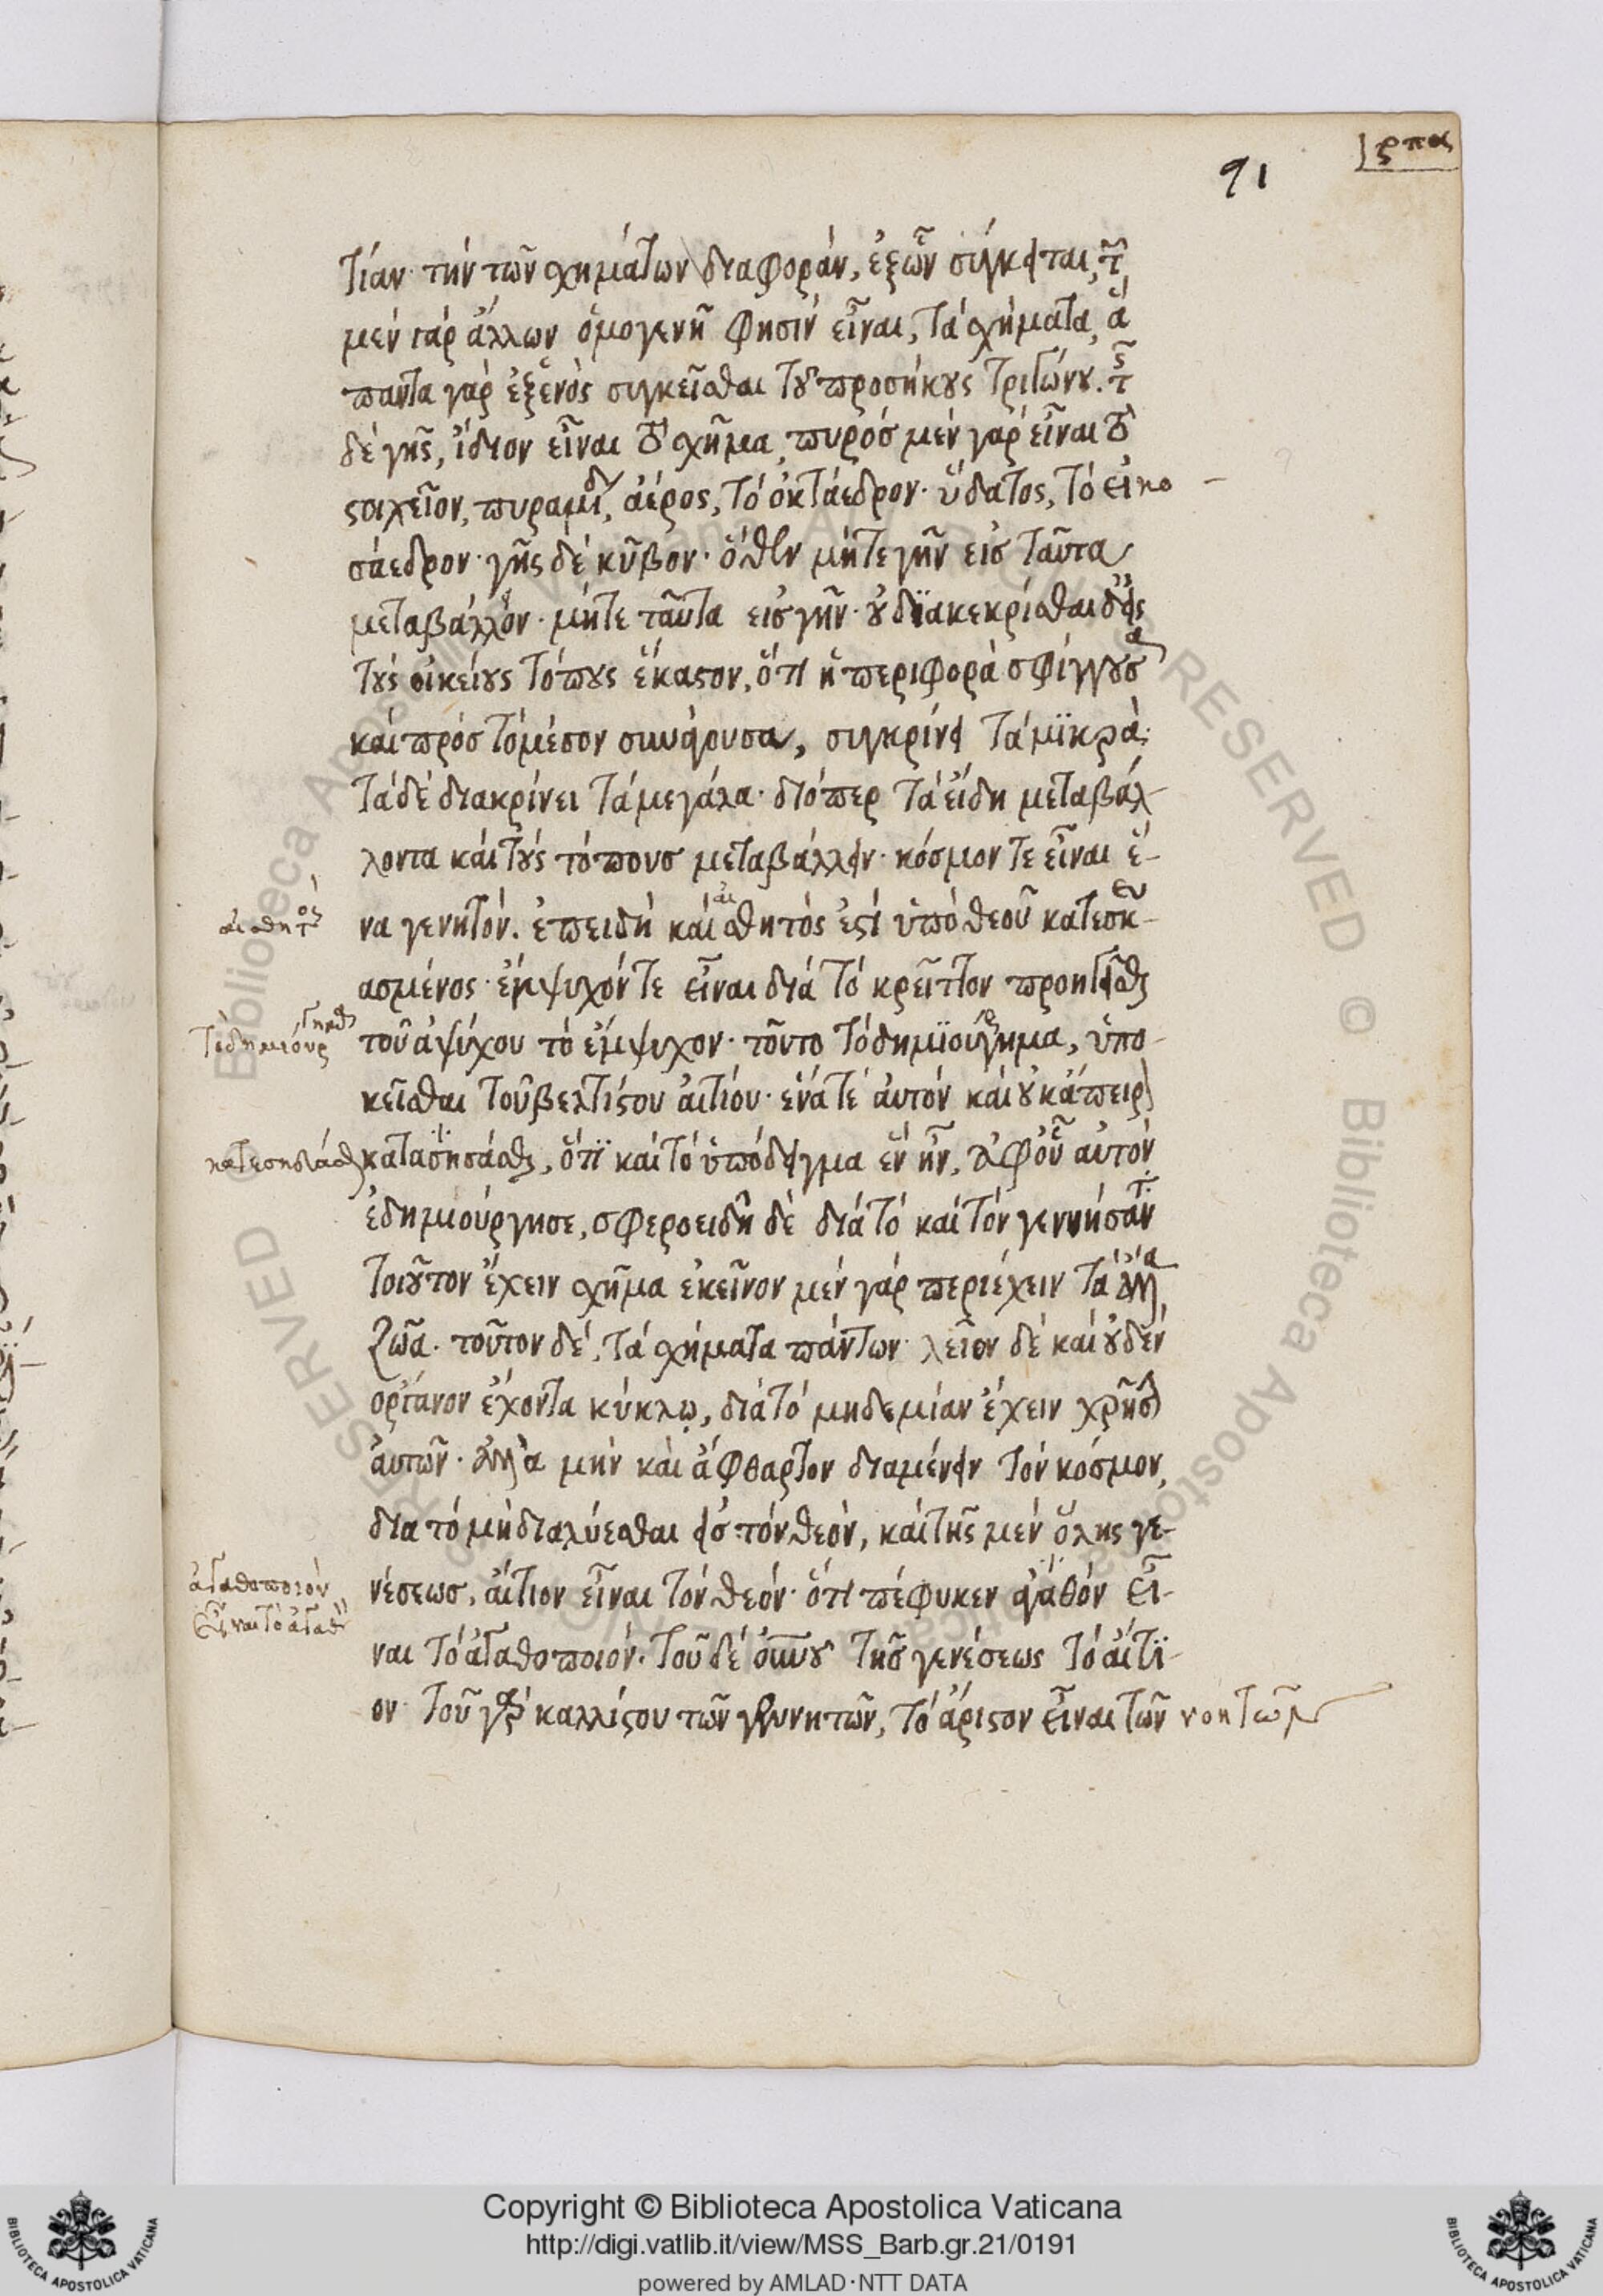 ρπας
91
τίαν τὴν τῶν σχημάτων διαφορὰν, ἐξ ὧν σύγκειται, τ
μὲν γὰρ ἄλλων ὁμογενῆ φησὶν εἶναι, τὰ σχήματα, ἅ
παντα γὰρ ἐξ ἑνὸς συγκεῖσθαι τοῦ προσήκους τριγώνου. τ
δὲ γῆς, ἴδιον εἶναι τὸ σχῆμα, πυρὸς μὲν γὰρ εἶναι τὸ
στοιχεῖον, πυραμίδ, ἀέρος, τὸ ὀκτάεδρον· ὕδατος, τὸ εἰκο
σάεδρον· γῆς δὲ κῦβον· ὅθεν μήτε γῆν εἰς ταῦτα
μεταβάλλον· μήτε ταῦτα εἰς γῆν· οὐ διακεκρίσθαι δ εἰς
τοὺς οἰκείους τόπους ἕκαστον, ὅτι ἡ περιφορὰ σφίγγουσα
καὶ πρὸς τὸ μέσον συνάγουσα, συγκρίνει τὰ μϊκρὰ·
τὰ δὲ διακρίνει τὰ μεγάλα· διόπερ τὰ εἴδη μεταβάλ-
λοντα καὶ τοὺς τόπους μεταβάλλειν· κόσμον τε εἶναι ἕ-
να γενητόν. ἐπειδὴ καὶ αἰσθητὸς ἐστὶ ὑπὸ θεοῦ κατεσκευ-
ασμένος· ἔμψυχόν τε εἶναι διὰ τὸ κρεῖττον προηγεῖσθαι
τοῦ ἀψύχου τὸ ἔμψυχον· τοῦτο τὸ δημϊούργημα, ὑπο
κεῖσθαι τοῦ βελτίστου αἰτίου· ἕνα τὲ αὐτὸν καὶ οὐκ ἄπειρ
κατασ ησάσθαι, ὅτϊ καὶ τὸ ὑπόδειγμα ἓν ἦν, ἀφ' οὗ αὐτὸν
ἐδημιούργησε, σφεροειδῆ δὲ διὰ τὸ καὶ τὸν γεννήσαντ
τοιοῦτον ἔχειν σχῆμα ἐκεῖνον μὲν γὰρ περιέχειν τὰ ἄλλα
ζῶα. τοῦτον δὲ, τὰ σχήματα πάντων· λεῖον δὲ καὶ οὐδὲν
ὄργανον ἔχοντα κύκλῳ, διὰ τὸ μηδεμίαν ἔχειν χρῆσ
αὐτῶν· ἀλλὰ μὴν καὶ ἄφθαρτον διαμένειν τὸν κόσμον,
δια τὸ μὴ διαλύεσθαι εἰς τὸν θεόν, καὶ τῆς μὲν ὅλης γε-
νέσεως, αἴτιον εἶναι τὸν θεόν· ὅτι πέφυκεν ἀγαθὸν εἶ-
ναι τὸ ἀγαθοποιόν. τοῦ δὲ οὐνοῦ τῆς γενέσεως τὸ αἴτϊ-
ον· τοῦ γὰρ καλλίστου τῶν γεννητῶν, τὸ ἄριστον εἶναι τῶν νοητῶν
αἰσθητὸς
τὸ δημιούργηθ
ἀγαθοποιὸν
εἶναι τὸ ἀγαθὸ
Copyright © Biblioteca Apostolica Vaticana
http://digi.vatlib.it/view/MSS_Barb.gr.21/0191
powered by AMLAD·NTT DATA
BIBLIOTECA APOSTOLICA VATICANA
BIBLIOTECA APOSTOLICA VATICANA